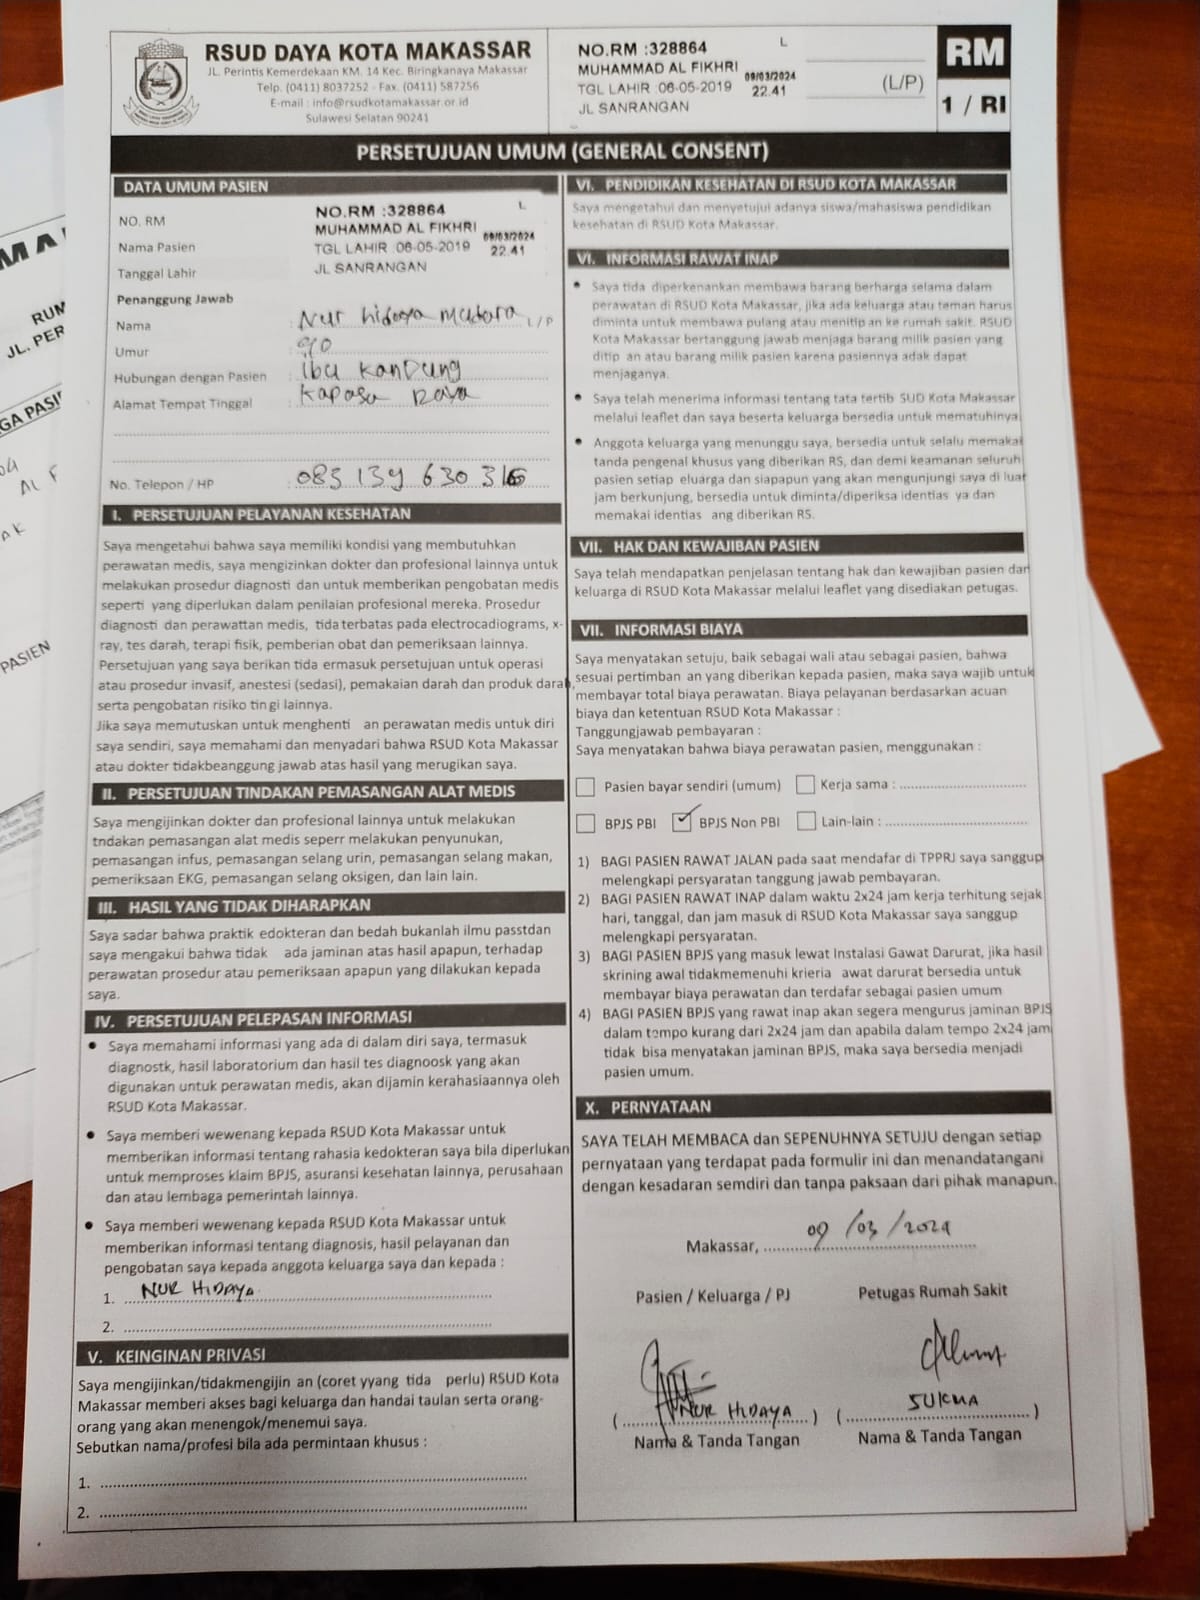 RSUD DAYA KOTA MAKASSAR
JL. Perintis Kemerdekaan KM. 14 Kec. Biringkanaya Makassar
Telp. (0411) 8037252 - Fax. (0411) 587256
E-mail : info@rsudkotamakassar.or.id
Sulawesi Selatan 90241
NO.RM :328864 L
MUHAMMAD AL FIKHRI
09/03/2024
TGL LAHIR :06-05-2019 22.41
JL SANRANGAN
(L/P)
RM
1 / RI
PERSETUJUAN UMUM (GENERAL CONSENT)
DATA UMUM PASIEN
NO. RM
NO.RM :328864 L
Nama Pasien MUHAMMAD AL FIKHRI 09/03/2024
Tanggal Lahir TGL LAHIR :06-05-2019 22.41
JL SANRANGAN
Penanggung Jawab
Nama : Nur hidaya L/P
Umur :
Hubungan dengan Pasien : ibu kandung
Alamat Tempat Tinggal : Kapasa Raya
No. Telepon / HP : 083 139 630 316
I. PERSETUJUAN PELAYANAN KESEHATAN
Saya mengetahui bahwa saya memiliki kondisi yang membutuhkan
perawatan medis, saya mengizinkan dokter dan profesional lainnya untuk
melakukan prosedur diagnosti dan untuk memberikan pengobatan medis
seperti yang diperlukan dalam penilaian profesional mereka. Prosedur
diagnosti dan perawattan medis, tida terbatas pada electrocadiograms, x-
ray, tes darah, terapi fisik, pemberian obat dan pemeriksaan lainnya.
Persetujuan yang saya berikan tida ermasuk persetujuan untuk operasi
atau prosedur invasif, anestesi (sedasi), pemakaian darah dan produk darah,
serta pengobatan risiko tin gi lainnya.
Jika saya memutuskan untuk menghenti an perawatan medis untuk diri
saya sendiri, saya memahami dan menyadari bahwa RSUD Kota Makassar
atau dokter tidakbeanggung jawab atas hasil yang merugikan saya.
II. PERSETUJUAN TINDAKAN PEMASANGAN ALAT MEDIS
Saya mengijinkan dokter dan profesional lainnya untuk melakukan
tndakan pemasangan alat medis seperr melakukan penyunukan,
pemasangan infus, pemasangan selang urin, pemasangan selang makan,
pemeriksaan EKG, pemasangan selang oksigen, dan lain lain.
III. HASIL YANG TIDAK DIHARAPKAN
Saya sadar bahwa praktik edokteran dan bedah bukanlah ilmu passtdan
saya mengakui bahwa tidak ada jaminan atas hasil apapun, terhadap
perawatan prosedur atau pemeriksaan apapun yang dilakukan kepada
saya.
IV. PERSETUJUAN PELEPASAN INFORMASI
• Saya memahami informasi yang ada di dalam diri saya, termasuk
diagnostk, hasil laboratorium dan hasil tes diagnoosk yang akan
digunakan untuk perawatan medis, akan dijamin kerahasiaannya oleh
RSUD Kota Makassar.
• Saya memberi wewenang kepada RSUD Kota Makassar untuk
memberikan informasi tentang rahasia kedokteran saya bila diperlukan
untuk memproses klaim BPJS, asuransi kesehatan lainnya, perusahaan
dan atau lembaga pemerintah lainnya.
• Saya memberi wewenang kepada RSUD Kota Makassar untuk
memberikan informasi tentang diagnosis, hasil pelayanan dan
pengobatan saya kepada anggota keluarga saya dan kepada :
1. NUR HIDAYA
2.
V. KEINGINAN PRIVASI
Saya mengijinkan/tidakmengijin an (coret yyang tida perlu) RSUD Kota
Makassar memberi akses bagi keluarga dan handai taulan serta orang-
orang yang akan menengok/menemui saya.
Sebutkan nama/profesi bila ada permintaan khusus :
1.
2.
VI. PENDIDIKAN KESEHATAN DI RSUD KOTA MAKASSAR
Saya mengetahui dan menyetujui adanya siswa/mahasiswa pendidikan
kesehatan di RSUD Kota Makassar.
VI. INFORMASI RAWAT INAP
• Saya tida diperkenankan membawa barang berharga selama dalam
perawatan di RSUD Kota Makassar, jika ada keluarga atau teman harus
diminta untuk membawa pulang atau menitip an ke rumah sakit. RSUD
Kota Makassar bertanggung jawab menjaga barang milik pasien yang
ditip an atau barang milik pasien karena pasiennya adak dapat
menjaganya.
• Saya telah menerima informasi tentang tata tertib SUD Kota Makassar
melalui leaflet dan saya beserta keluarga bersedia untuk mematuhinya.
• Anggota keluarga yang menunggu saya, bersedia untuk selalu memakai
tanda pengenal khusus yang diberikan RS, dan demi keamanan seluruh
pasien setiap eluarga dan siapapun yang akan mengunjungi saya di luar
jam berkunjung, bersedia untuk diminta/diperiksa identias ya dan
memakai identias ang diberikan RS.
VII. HAK DAN KEWAJIBAN PASIEN
Saya telah mendapatkan penjelasan tentang hak dan kewajiban pasien dan
keluarga di RSUD Kota Makassar melalui leaflet yang disediakan petugas.
VII. INFORMASI BIAYA
Saya menyatakan setuju, baik sebagai wali atau sebagai pasien, bahwa
sesuai pertimban an yang diberikan kepada pasien, maka saya wajib untuk
membayar total biaya perawatan. Biaya pelayanan berdasarkan acuan
biaya dan ketentuan RSUD Kota Makassar :
Tanggungjawab pembayaran :
Saya menyatakan bahwa biaya perawatan pasien, menggunakan :
Pasien bayar sendiri (umum) Kerja sama :
BPJS PBI ✓ BPJS Non PBI Lain-lain :
1) BAGI PASIEN RAWAT JALAN pada saat mendafar di TPPRJ saya sanggup
melengkapi persyaratan tanggung jawab pembayaran.
2) BAGI PASIEN RAWAT INAP dalam waktu 2x24 jam kerja terhitung sejak
hari, tanggal, dan jam masuk di RSUD Kota Makassar saya sanggup
melengkapi persyaratan.
3) BAGI PASIEN BPJS yang masuk lewat Instalasi Gawat Darurat, jika hasil
skrining awal tidakmemenuhi krieria awat darurat bersedia untuk
membayar biaya perawatan dan terdafar sebagai pasien umum
4) BAGI PASIEN BPJS yang rawat inap akan segera mengurus jaminan BPJS
dalam tempo kurang dari 2x24 jam dan apabila dalam tempo 2x24 jam
tidak bisa menyatakan jaminan BPJS, maka saya bersedia menjadi
pasien umum.
X. PERNYATAAN
SAYA TELAH MEMBACA dan SEPENUHNYA SETUJU dengan setiap
pernyataan yang terdapat pada formulir ini dan menandatangani
dengan kesadaran semdiri dan tanpa paksaan dari pihak manapun.
Makassar, 09/03/2024
Pasien / Keluarga / PJ Petugas Rumah Sakit
(NUR HIDAYA) (SUKMA)
Nama & Tanda Tangan Nama & Tanda Tangan
RUM
JL. PER
GA PASI
PASIEN